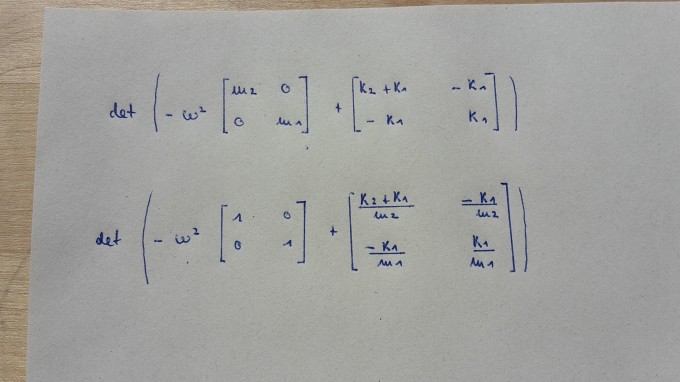 det ( - ω² [ m₂ 0 ; 0 m₁ ] + [ K₂ + K₁ - K₁ ; - K₁ K₁ ] )
det ( - ω² [ 1 0 ; 0 1 ] + [ (K₂ + K₁)/m₂ - K₁/m₂ ; - K₁/m₁ K₁/m₁ ] )